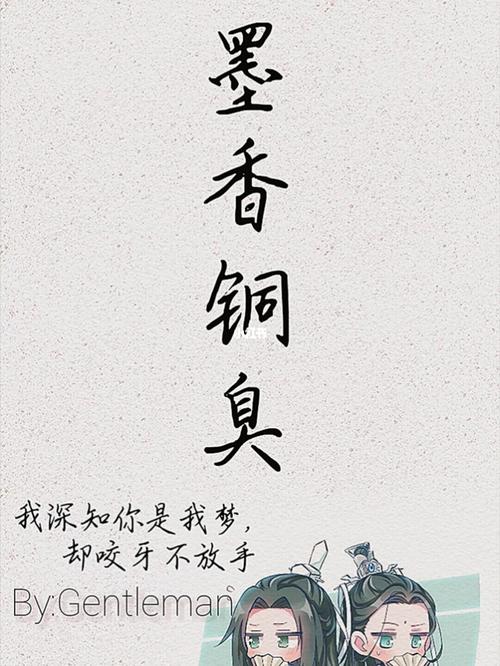 墨香铜臭
我深知你是我梦，
却咬牙不放手
By:Gentleman